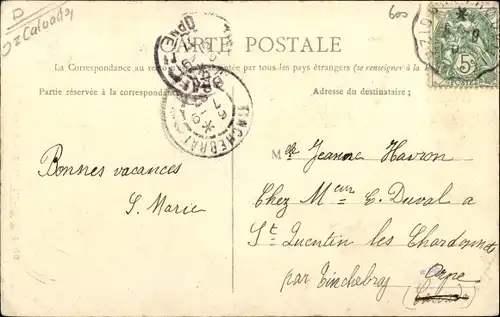 D
Calvados
600
CARTE POSTALE
La Correspondance au recto par tous les pays étrangers (se renseigner à la
Partie réservée à la correspondance
Adresse du destinataire ;
TINCHEBRAI
ORNE
5c
Bonnes vacances
S. Marie
Melle Jeanne Havron
Chez Meur E. Duval à
St Quentin les Chardonnets
par Tinchebray Orne
(Calvados)